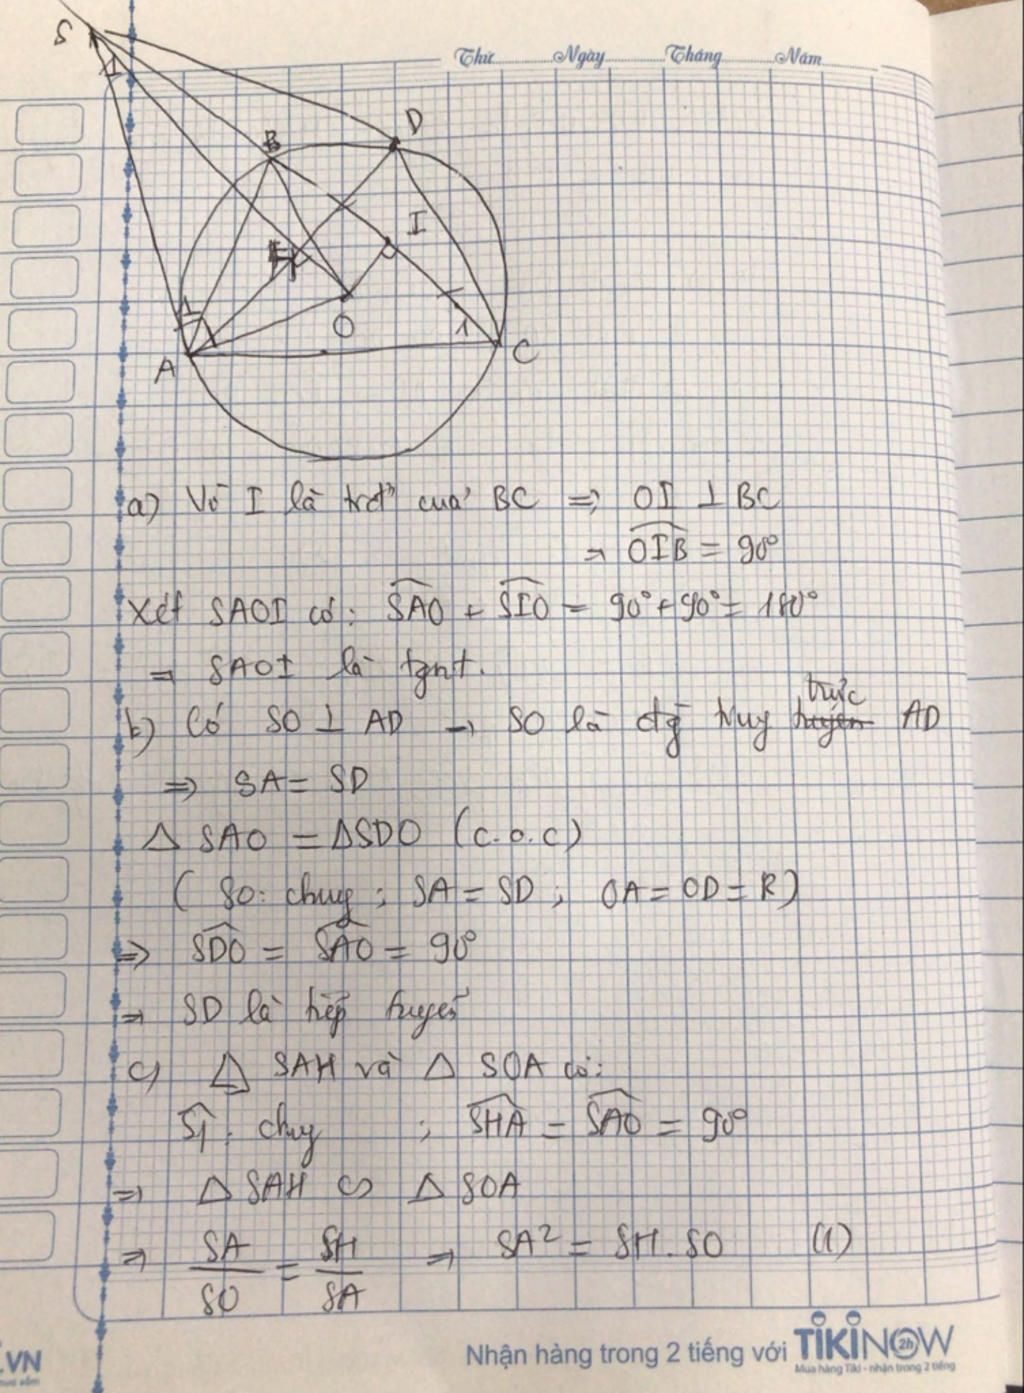 Thứ Ngày Tháng Năm
S
1
B
D
I
H
O
1
A
C
a) Vì I là trđ' của BC => OI ⊥ BC
=> OIB = 90°
Xét SAOI có: SAO + SIO = 90° + 90° = 180°
=> SAOI là tgnt.
b) Có SO ⊥ AD -> SO là đg trung trực AD
=> SA = SD
Δ SAO = Δ SDO (c.c.c)
( SO: chung ; SA = SD ; OA = OD = R )
=> SDO = SAO = 90°
=> SD là tiếp tuyến
c) Δ SAH và Δ SOA có:
S1: chung ; SHA = SAO = 90°
=> Δ SAH ∽ Δ SOA
=> SA/SO = SH/SA => SA² = SH.SO (1)
.VN
Nhận hàng trong 2 tiếng với TIKINOW 2h
Mua hàng Tiki - nhận trong 2 tiếng